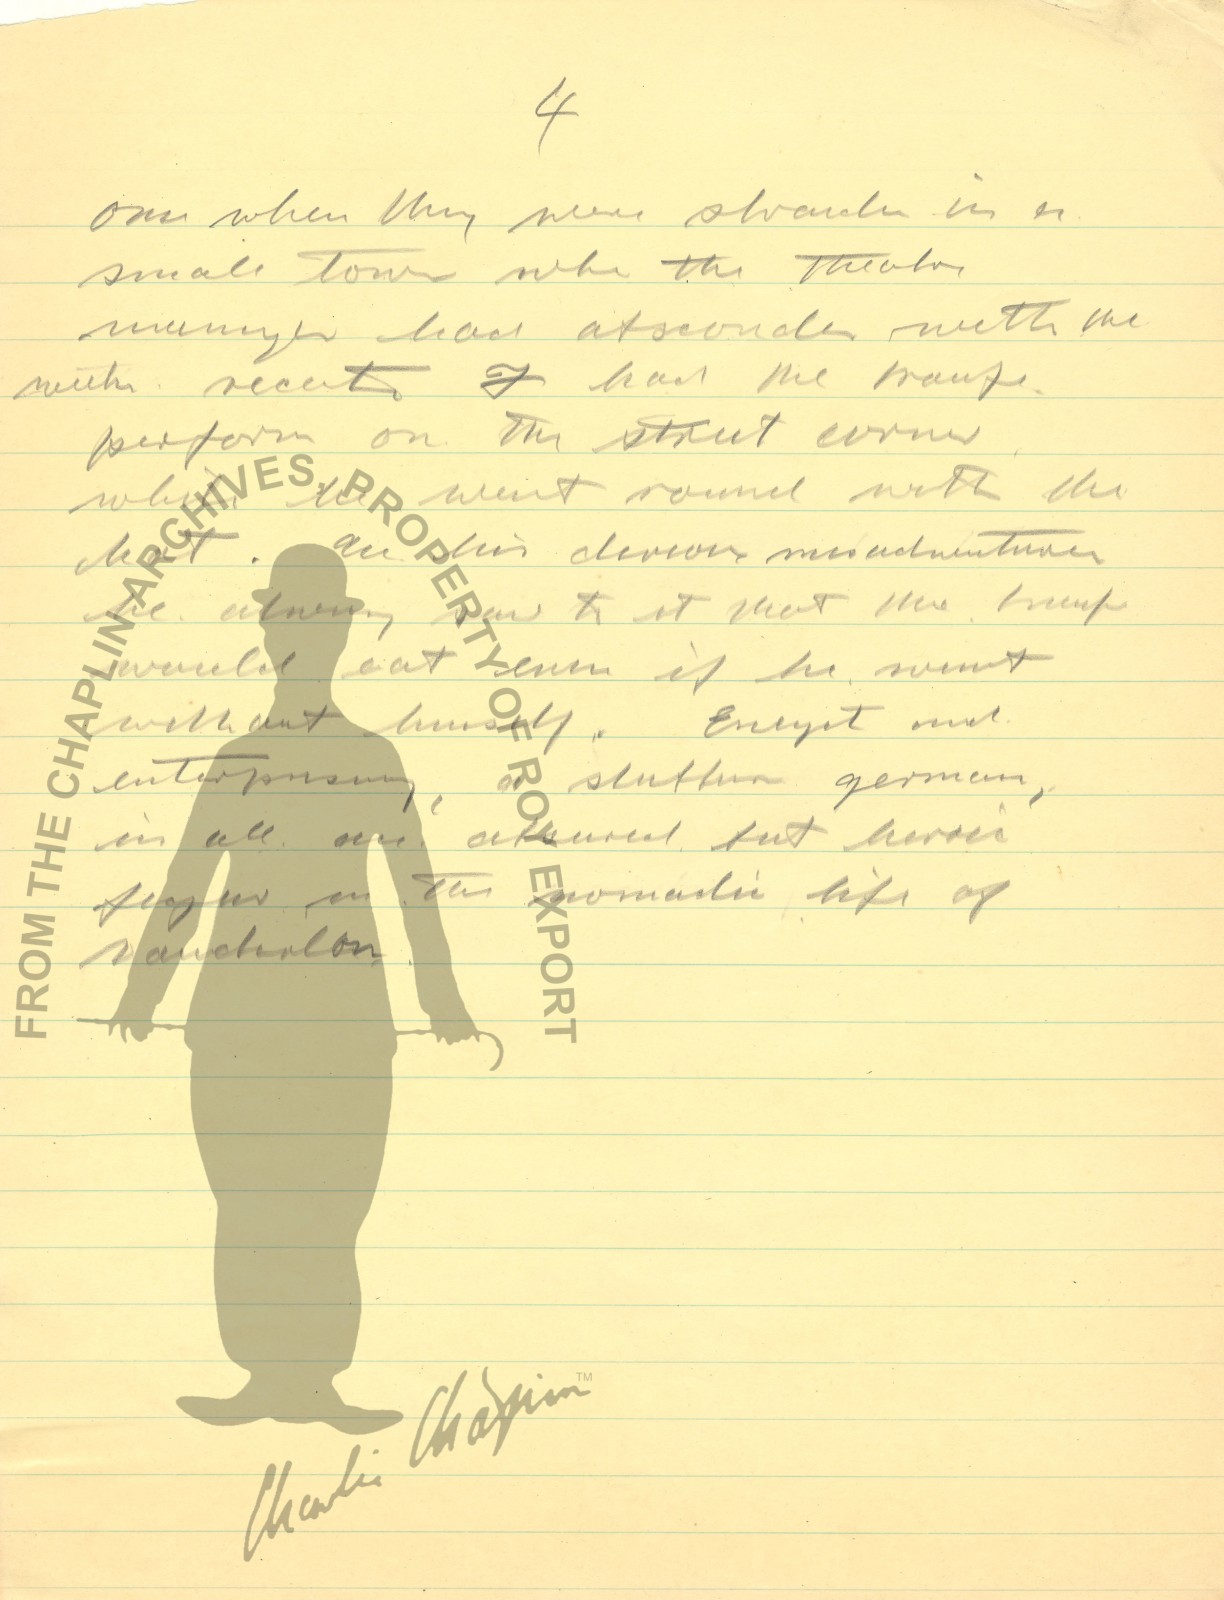 4
once when they were strande in a
small town whe the theatre
manager had absconded with the
with receits had the troupe
perform on the street corner
while he went round with the
hat. In his devious misadventures
he always saw to it that the troupe
would eat even if he went
without himself. and
enterprising, a german,
in all an absurd but heroic
figure in the nomadic life of
FROM THE CHAPLIN ARCHIVES, PROPERTY OF ROY EXPORT
Charlie Chaplin TM